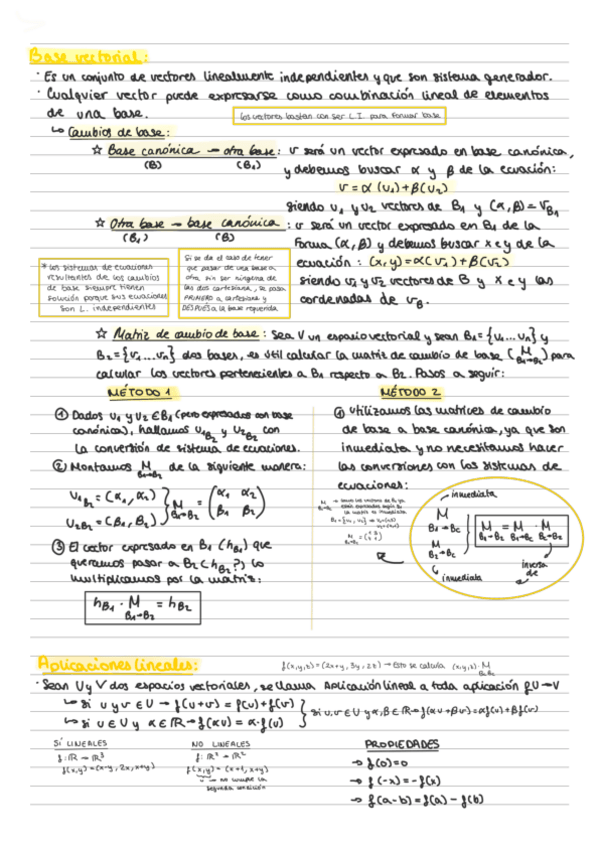 Base vectorial:
· Es un conjunto de vectores linealmente independientes y que son sistema generador.
· Cualquier vector puede expresarse como combinación lineal de elementos
de una base.
Los vectores bastan con ser L.I. para formar base
↳ Cambios de base:
☆ Base canónica → otra base: v será un vector expresado en base canónica,
(B) (B₁) y debemos buscar α y β de la ecuación:
v = α(u₁)+β(u₂)
siendo u₁ y u₂ vectores de B₁ y (α,β)=v_B₁
☆ Otra base → base canónica: v será un vector expresado en B₁ de la
(B₁) (B) forma (α,β) y debemos buscar x e y de la
ecuación: (x,y)=α(u₁)+β(u₂)
siendo u₁ y u₂ vectores de B y x e y las
coordenadas de v_B.
* Los sistemas de ecuaciones
resultantes de los cambios
de base siempre tienen
solución porque sus ecuaciones
son L. independientes
Si se da el caso de tener
que pasar de una base a
otra sin ser ninguna de
las dos cartesiana, se pasa
PRIMERO a cartesiana y
DESPUÉS a la base requerida
☆ Matriz de cambio de base: Sea V un espacio vectorial y sean B₁={u₁...uₙ} y
B₂={v₁...vₙ} dos bases, es útil calcular la matriz de cambio de base (M B₁→B₂) para
calcular los vectores pertenecientes a B₁ respecto a B₂. Pasos a seguir:
MÉTODO 1
① Dados u₁ y u₂ ∈ B₁ (pero expresados con base
canónica), hallamos u₁_B₂ y u₂_B₂ con
la conversión de sistema de ecuaciones.
② Montamos M B₁→B₂ de la siguiente manera:
u₁_B₂ = (α₁, α₂)
u₂_B₂ = (β₁, β₂)
③ El vector expresado en B₁ (h_B₁) que
queramos pasar a B₂ (h_B₂?) lo
multiplicamos por la matriz:
h_B₁ · M B₁→B₂ = h_B₂
MÉTODO 2
① Utilizamos las matrices de cambio
de base a base canónica, ya que son
inmediata y no necesitamos hacer
las conversiones con los sistemas de
ecuaciones:
inmediata
M B₁→Bc
M B₂→Bc
M B₁→B₂ = M B₁→Bc · M Bc→B₂
inmediata
inversa
de
Aplicaciones lineales:
f(x,y,z)=(2x+y, 3y, 2z) → Esto se calcula (x,y,z)·M
· Sean U y V dos espacios vectoriales, se llama Aplicación lineal a toda aplicación f:U→V
↳ si u y v ∈ U → f(u+v) = f(u)+f(v)
↳ si u ∈ U y α ∈ ℝ → f(αu) = α·f(u)
si u,v ∈ U y α,β ∈ ℝ → f(αu+βv)=αf(u)+βf(v)
SÍ LINEALES
f(x,y)=(x-y, 2x, x+y)
NO LINEALES
f(x,y) = (x+1, x+y)
→ no cumple la
segunda condición
PROPIEDADES
→ f(0)=0
→ f(-x)=-f(x)
→ f(a-b)=f(a)-f(b)